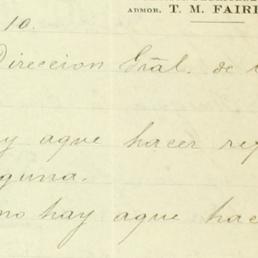 ADMOR. T. M. FAIRI
10.
Direccion Gral. de
y aque hacer
guna.
no hay aque hac